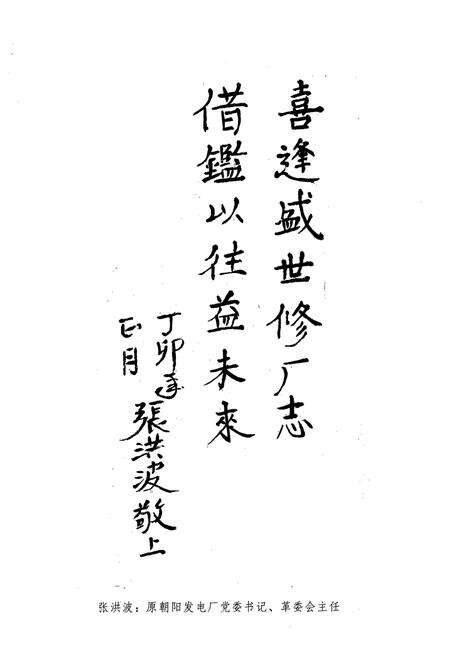 喜逢盛世修厂志
借鑑以往益未來
丁卯年
正月
張洪波敬上
张洪波：原朝阳发电厂党委书记、革委会主任